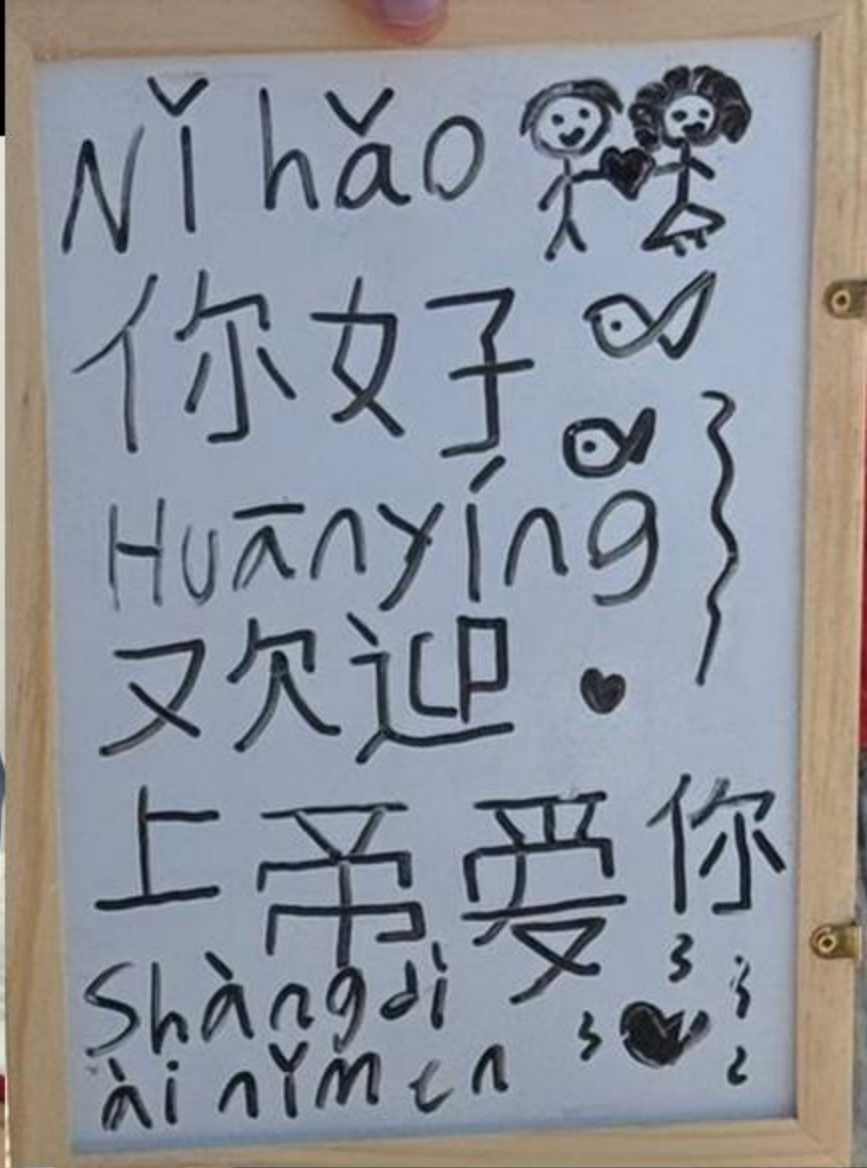 Nǐ hǎo
你好
Huānyíng
欢迎
上帝爱你
Shàngdì
ài nǐmen